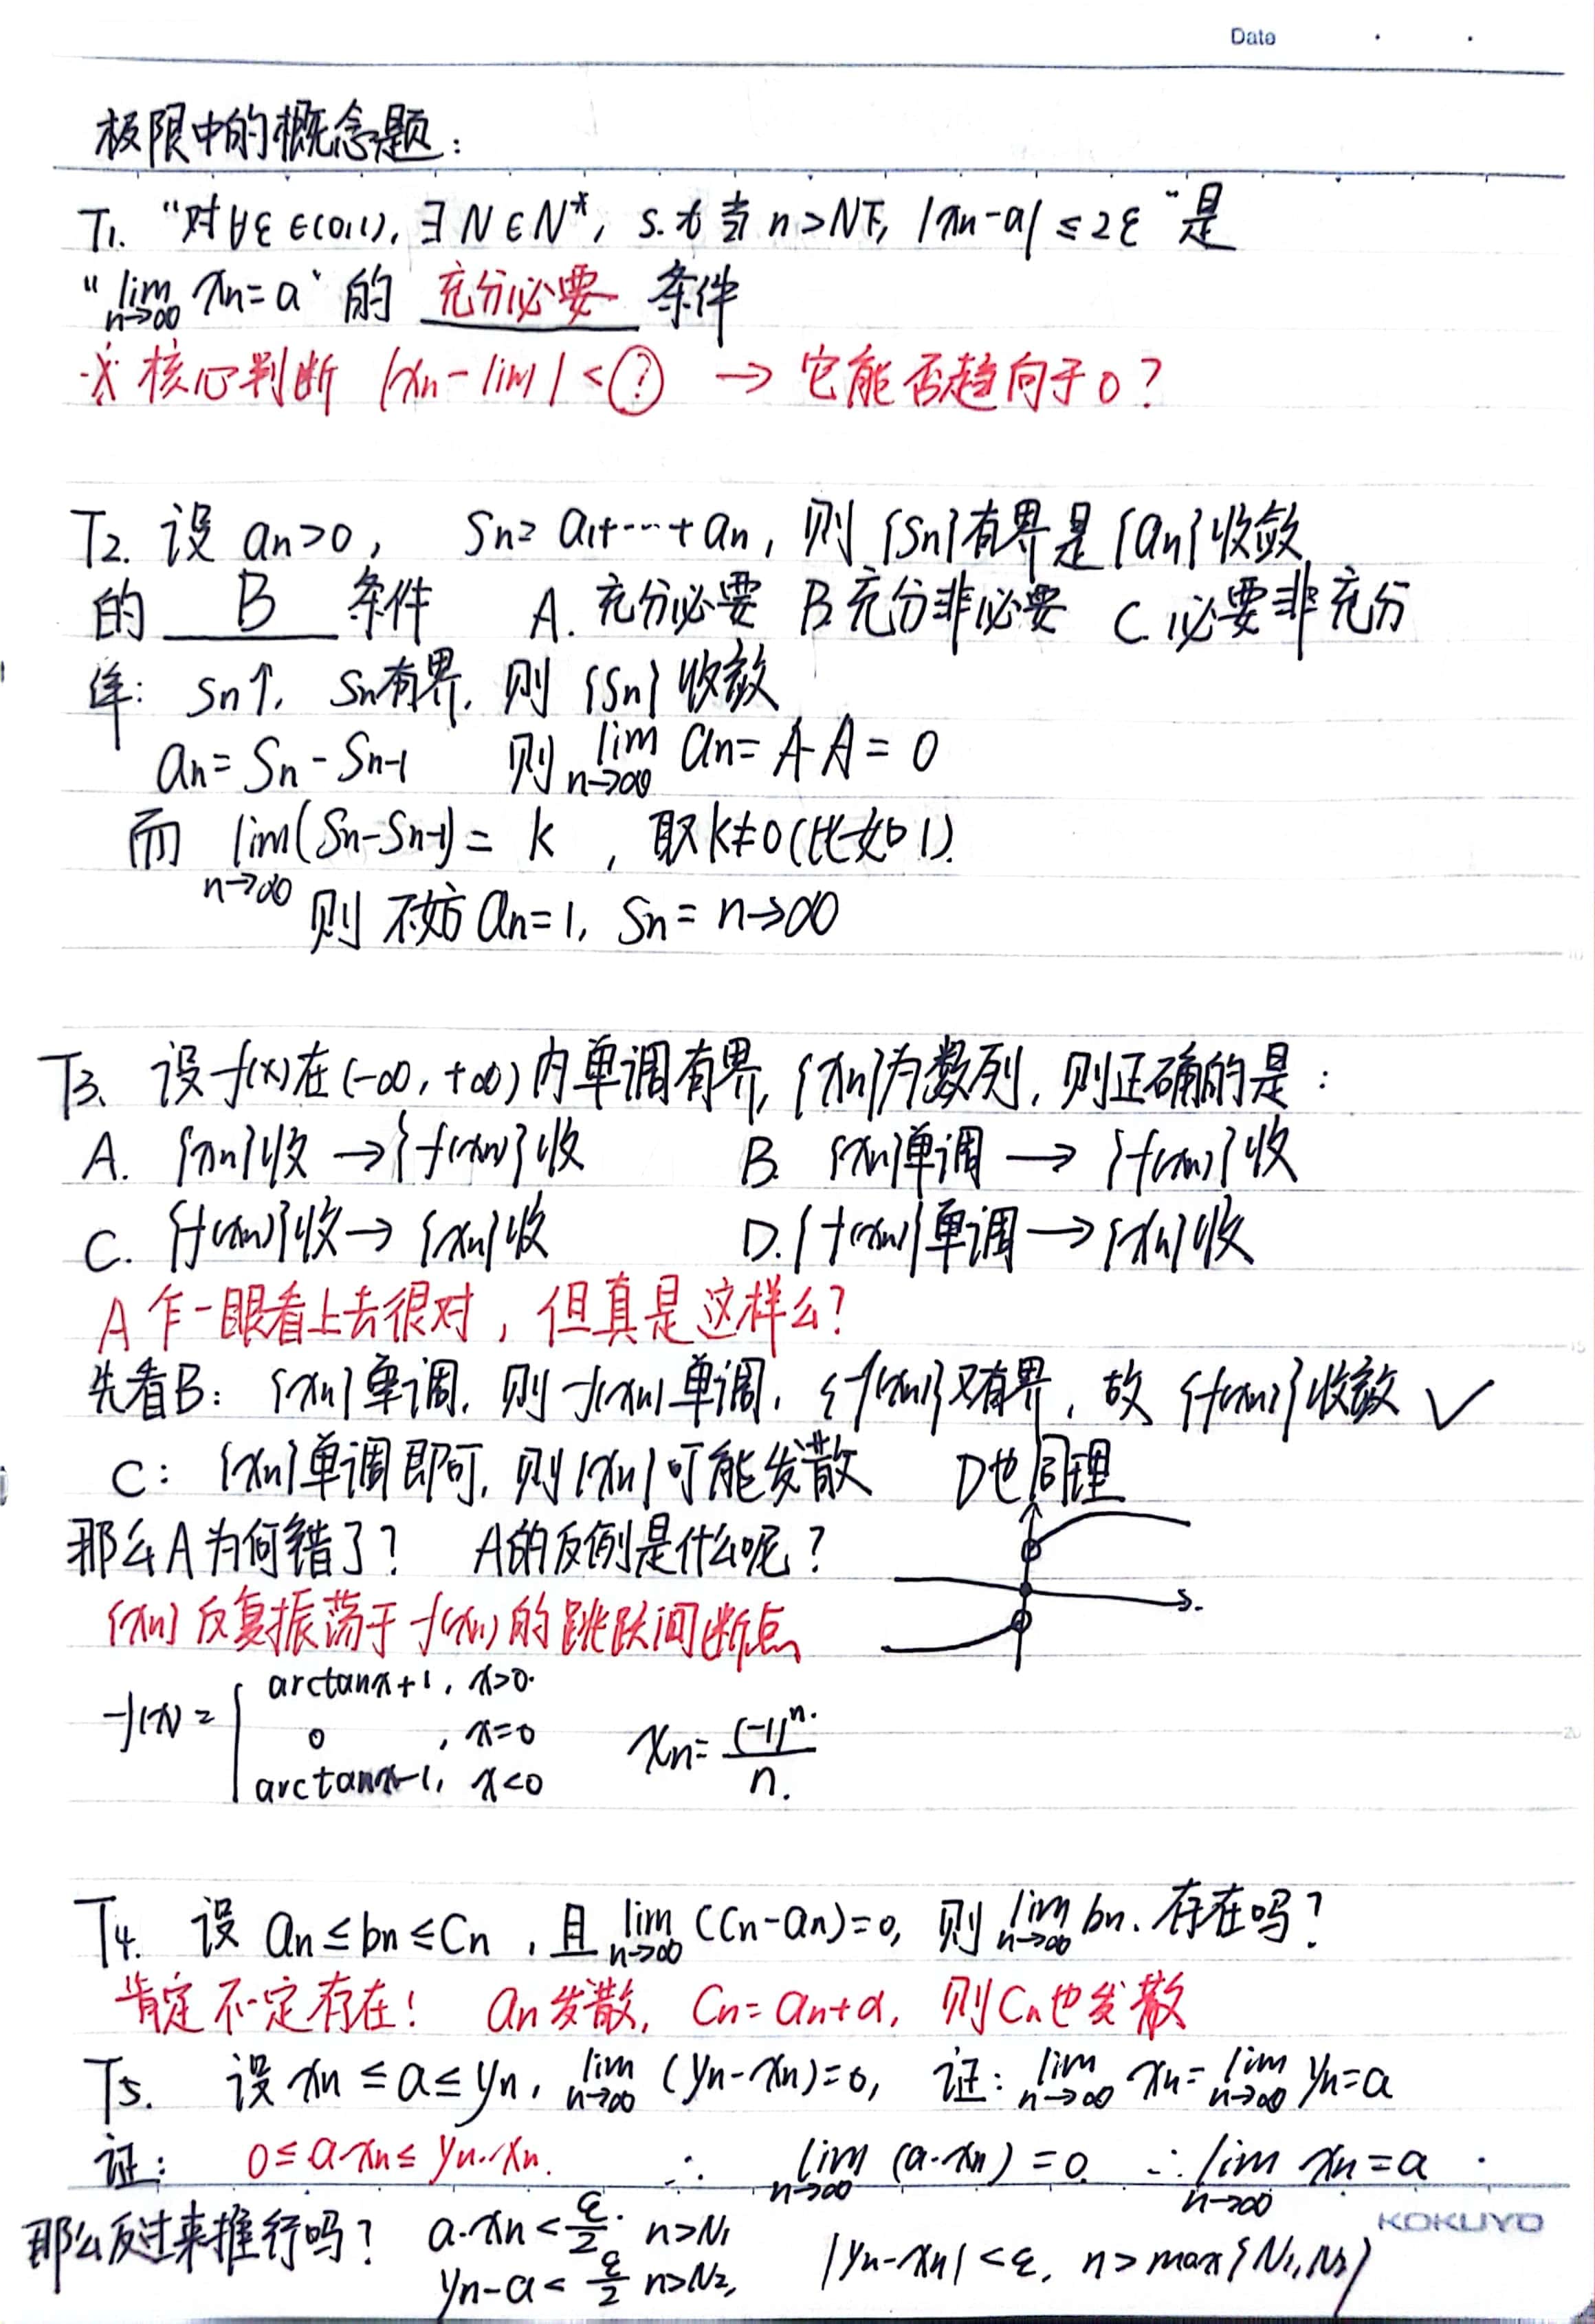 Date
极限中的概念题：
T1. “对∀ε∈(0,1), ∃N∈N*, s.t 当 n>N下, |xn-a|≤2ε”是
“lim n→∞ xn=a”的 充分必要 条件
※ 核心判断 |xn-lim|<? → 它能否趋向于0？
T2. 设 an>0, Sn=a1+…+an, 则{Sn}有界是{an}收敛
的 B 条件 A. 充分必要 B.充分非必要 C.必要非充分
Sn↑, Sn有界, 则 {Sn} 收敛
an=Sn-Sn-1 则 lim n→∞ an=A-A=0
而 lim n→∞ (Sn-Sn-1)= k , 取k≠0(比如1).
则 不妨 an=1, Sn=n→∞
T3. 设f(x)在(-∞,+∞)内单调有界, {xn}为数列, 则正确的是：
A. {xn}收→{f(xn)}收 B. {xn}单调 → {f(xn)}收
C. {f(xn)}收→ {xn}收 D.{f(xn)}单调→{xn}收
A 乍一眼看上去很对, 但真是这样么？
先看B: {xn}单调, 则 f(xn)单调, {f(xn)}又有界, 故 {f(xn)}收敛 ✓
C: {xn}单调即可, 则{xn}可能发散 D也同理
那么A为何错了？ A的反例是什么呢？
{xn}反复振荡于f(xn)的跳跃间断点
f(x)= { arctanx+1, x>0.
0 , x=0 xn=(-1)^n/n.
arctanx-1, x<0
T4. 设 an≤bn≤Cn , 且 lim n→∞ (Cn-an)=0, 则 lim n→∞ bn 存在吗？
肯定不一定存在! an发散, Cn=an+α, 则Cn也发散
T5. 设 xn≤a≤yn, lim n→∞ (yn-xn)=0, 证: lim n→∞ xn=lim n→∞ yn=a
证: 0≤a-xn≤yn-xn. ∴ lim n→∞ (a-xn)=0 ∴ lim n→∞ xn=a
KOKUYO
那么反过来推行吗？ a-xn<ε/2 n>N1
yn-a<ε/2 n>N2, |yn-xn|<ε, n>max{N1,N2}